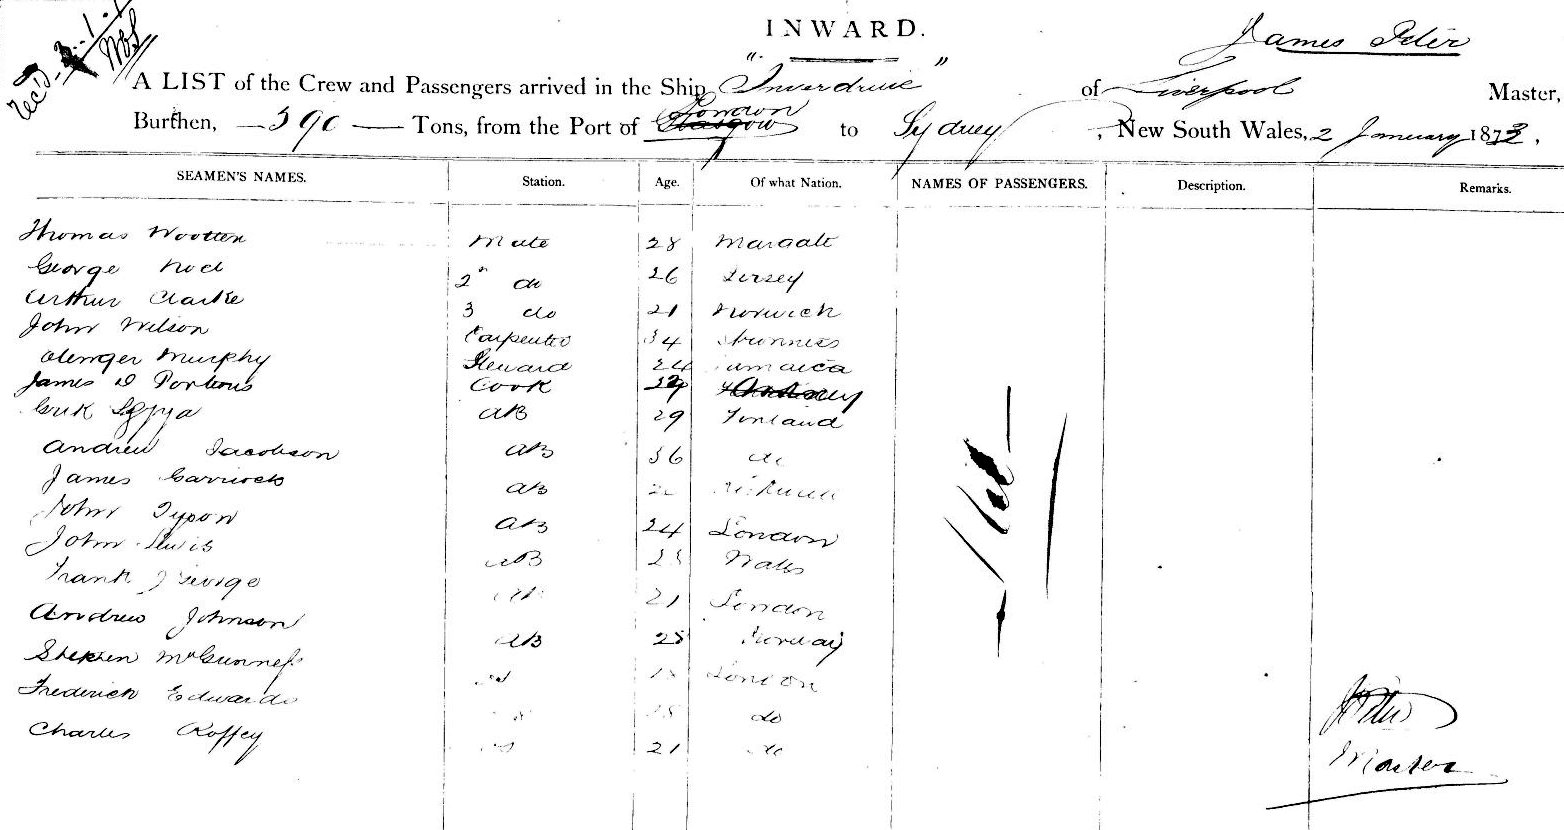 INWARD.
Rec'd
James Peter
A LIST of the Crew and Passengers arrived in the Ship "Inverdruie" of Liverpool Master,
Burthen, 590 Tons, from the Port of Glasgow London to Sydney, New South Wales, 2 January 1873.
SEAMEN'S NAMES. Station. Age. Of what Nation. NAMES OF PASSENGERS. Description. Remarks.
Thomas Wootten Mate 28 Margate
George Noel 2nd do 26 Jersey
Arthur Clarke 3 do 21 Norwich
John Wilson Carpenter 34
Murphy Steward 24 Jamaica
James D Porteous Cook
AB 29 Finland
Andrew Jacobson AB 36 do
James Garrioch AB
John Tyson AB 24 London
John Lewis AB Wales
Frank J George AB 21 London
Andrew Johnson AB 28 Norway
Stephen McGunness London
Frederick Edwards do
Charles Roffey 21 do
Nil
J Peter
Master